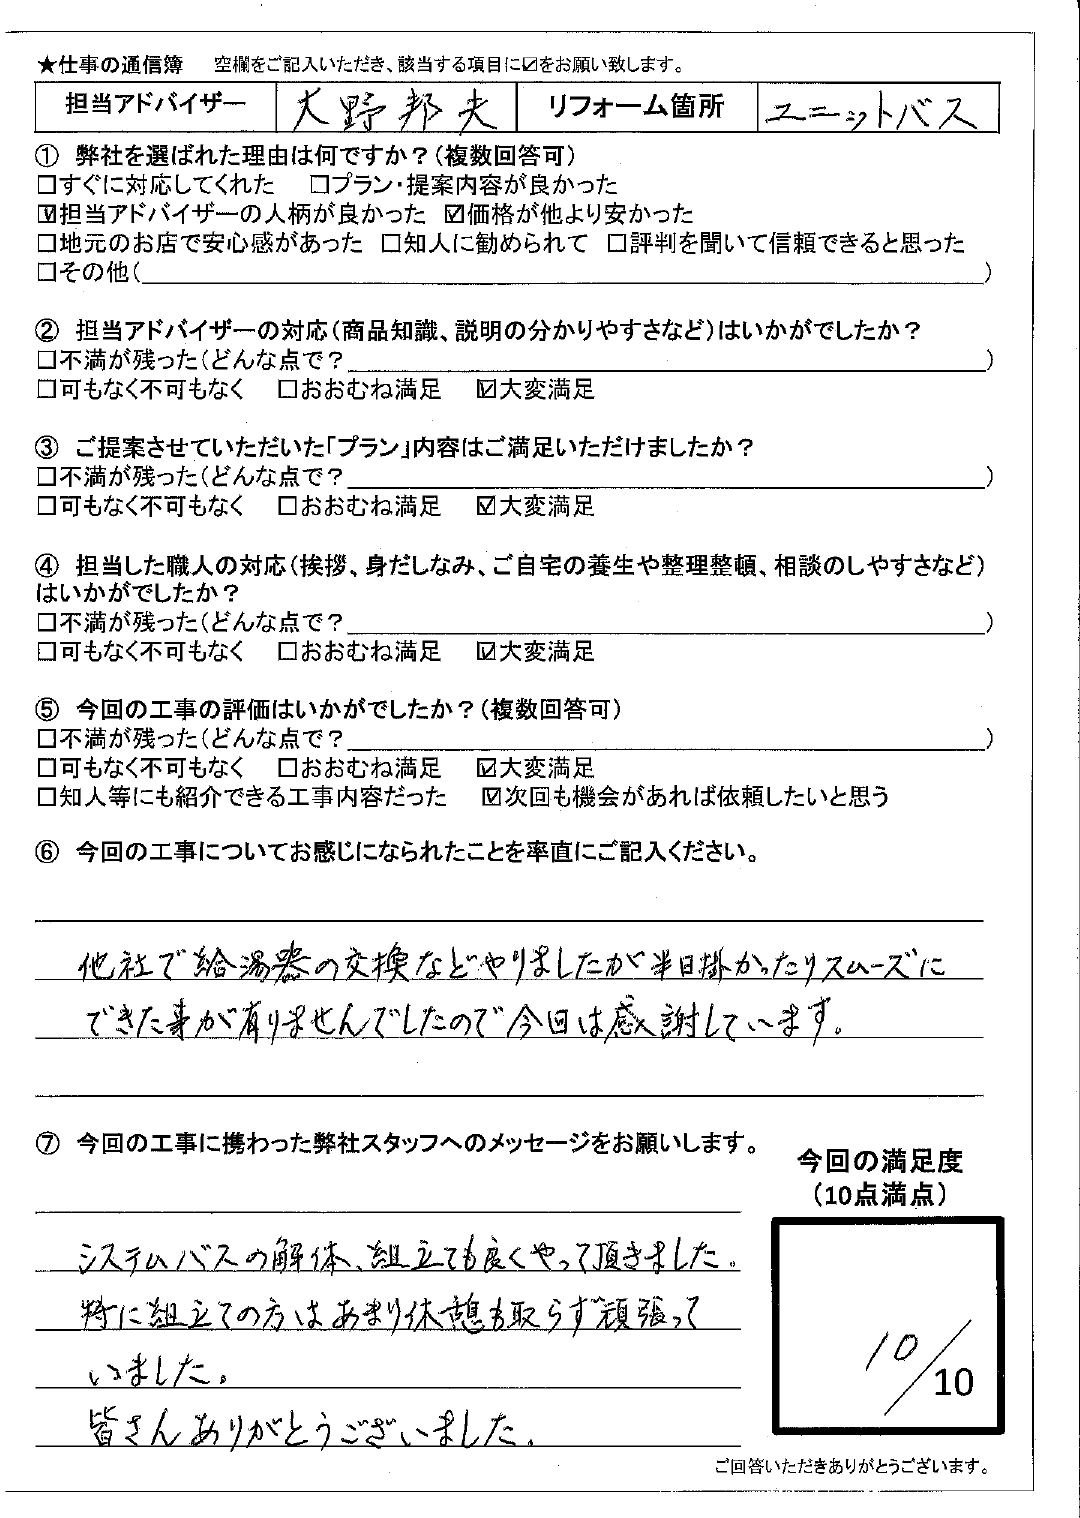 ★仕事の通信簿　空欄をご記入いただき、該当する項目に☑をお願い致します。
担当アドバイザー　大野邦夫　リフォーム箇所　ユニットバス
① 弊社を選ばれた理由は何ですか？（複数回答可）
□すぐに対応してくれた　□プラン・提案内容が良かった
☑担当アドバイザーの人柄が良かった　☑価格が他より安かった
□地元のお店で安心感があった　□知人に勧められて　□評判を聞いて信頼できると思った
□その他（　）
② 担当アドバイザーの対応（商品知識、説明の分かりやすさなど）はいかがでしたか？
□不満が残った（どんな点で？　）
□可もなく不可もなく　□おおむね満足　☑大変満足
③ ご提案させていただいた「プラン」内容はご満足いただけましたか？
□不満が残った（どんな点で？　）
□可もなく不可もなく　□おおむね満足　☑大変満足
④ 担当した職人の対応（挨拶、身だしなみ、ご自宅の養生や整理整頓、相談のしやすさなど）
はいかがでしたか？
□不満が残った（どんな点で？　）
□可もなく不可もなく　□おおむね満足　☑大変満足
⑤ 今回の工事の評価はいかがでしたか？（複数回答可）
□不満が残った（どんな点で？　）
□可もなく不可もなく　□おおむね満足　☑大変満足
□知人等にも紹介できる工事内容だった　☑次回も機会があれば依頼したいと思う
⑥ 今回の工事についてお感じになられたことを率直にご記入ください。
他社で給湯器の交換などやりましたが半日掛かったりスムーズに
できた事が有りませんでしたので今回は感謝しています。
⑦ 今回の工事に携わった弊社スタッフへのメッセージをお願いします。
システムバスの解体、組立ても良くやって頂きました。
特に組立ての方はあまり休憩も取らず頑張って
いました。
皆さんありがとうございました。
今回の満足度
（10点満点）
10/10
ご回答いただきありがとうございます。